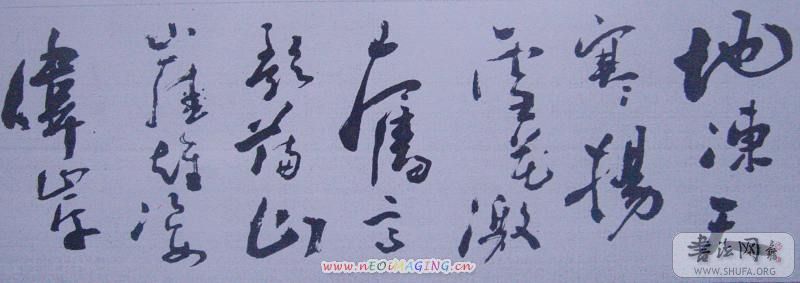 地凍天
寒揚
雪花激
奮高
歌蕩山
雄姿
偉岸
www.nEOiMAGING.cn
书法网
WWW.SHUFA.ORG